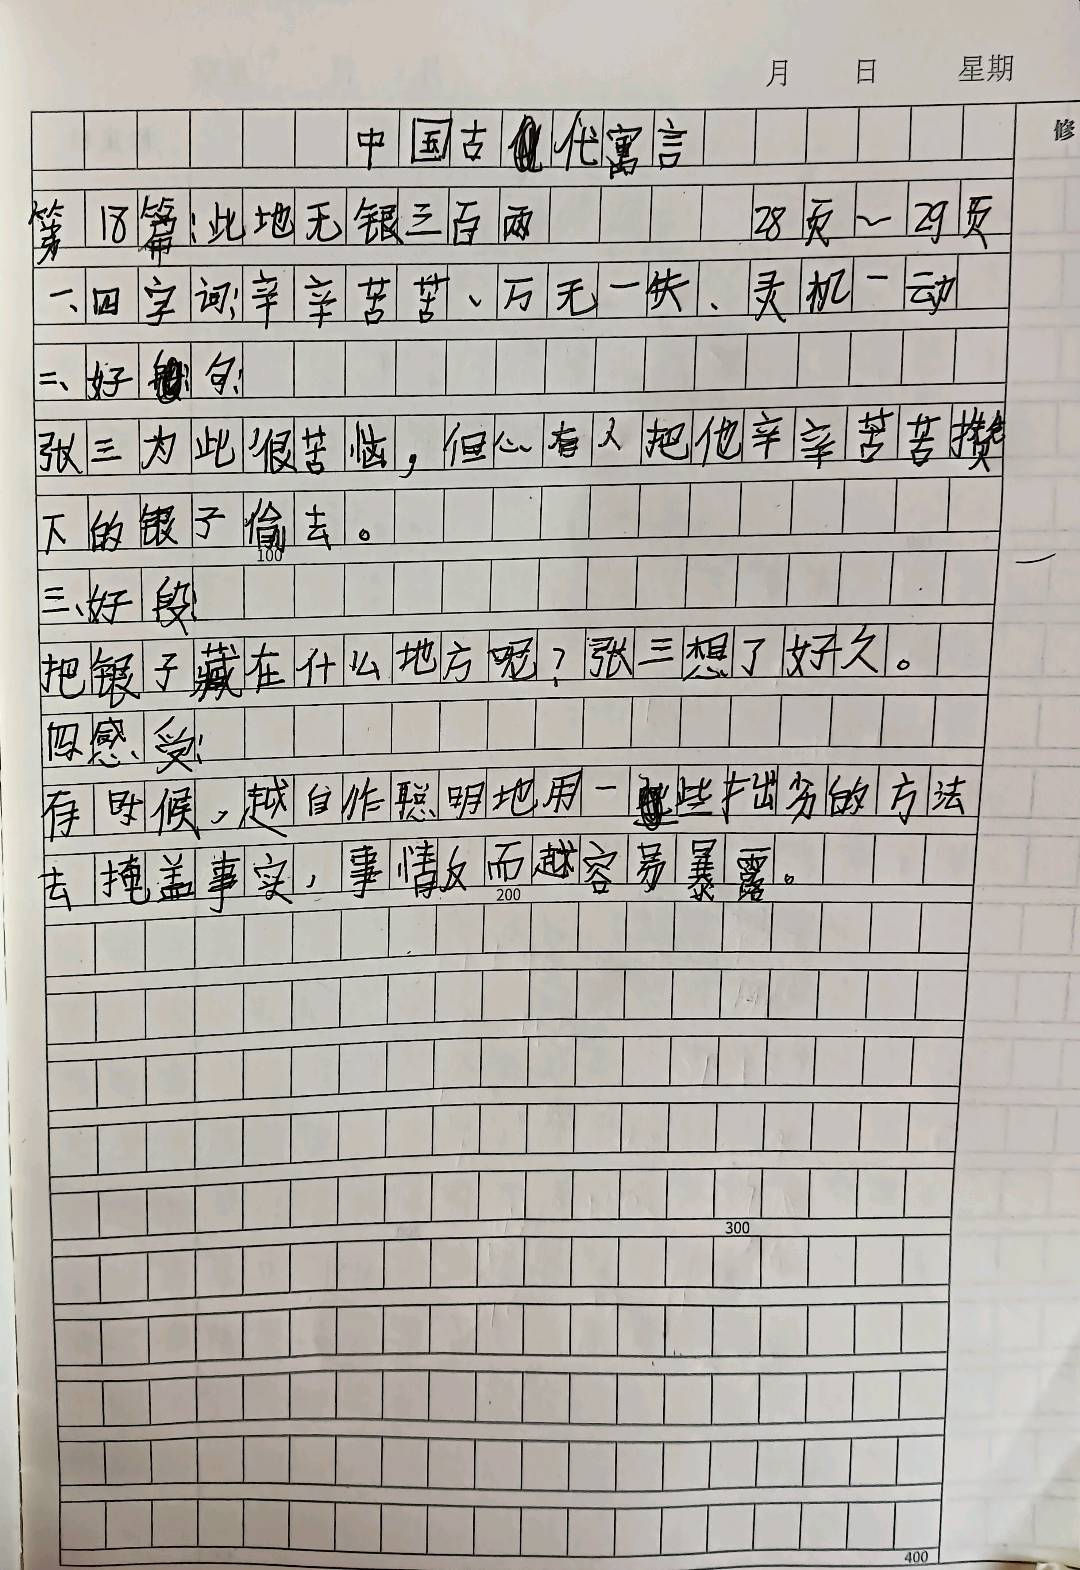 月 日 星期
修
中国古代寓言
第18篇:此地无银三百两 28页~29页
一、四字词:辛辛苦苦、万无一失、灵机一动
二、好句:
张三为此很苦恼,但心有人把他辛辛苦苦攒
下的银子偷去。
100
三、好段:
把银子藏在什么地方呢?张三想了好久。
四感受:
有时候,越自作聪明地用一些拙劣的方法
去掩盖事实,事情反而越容易暴露。
200
300
400